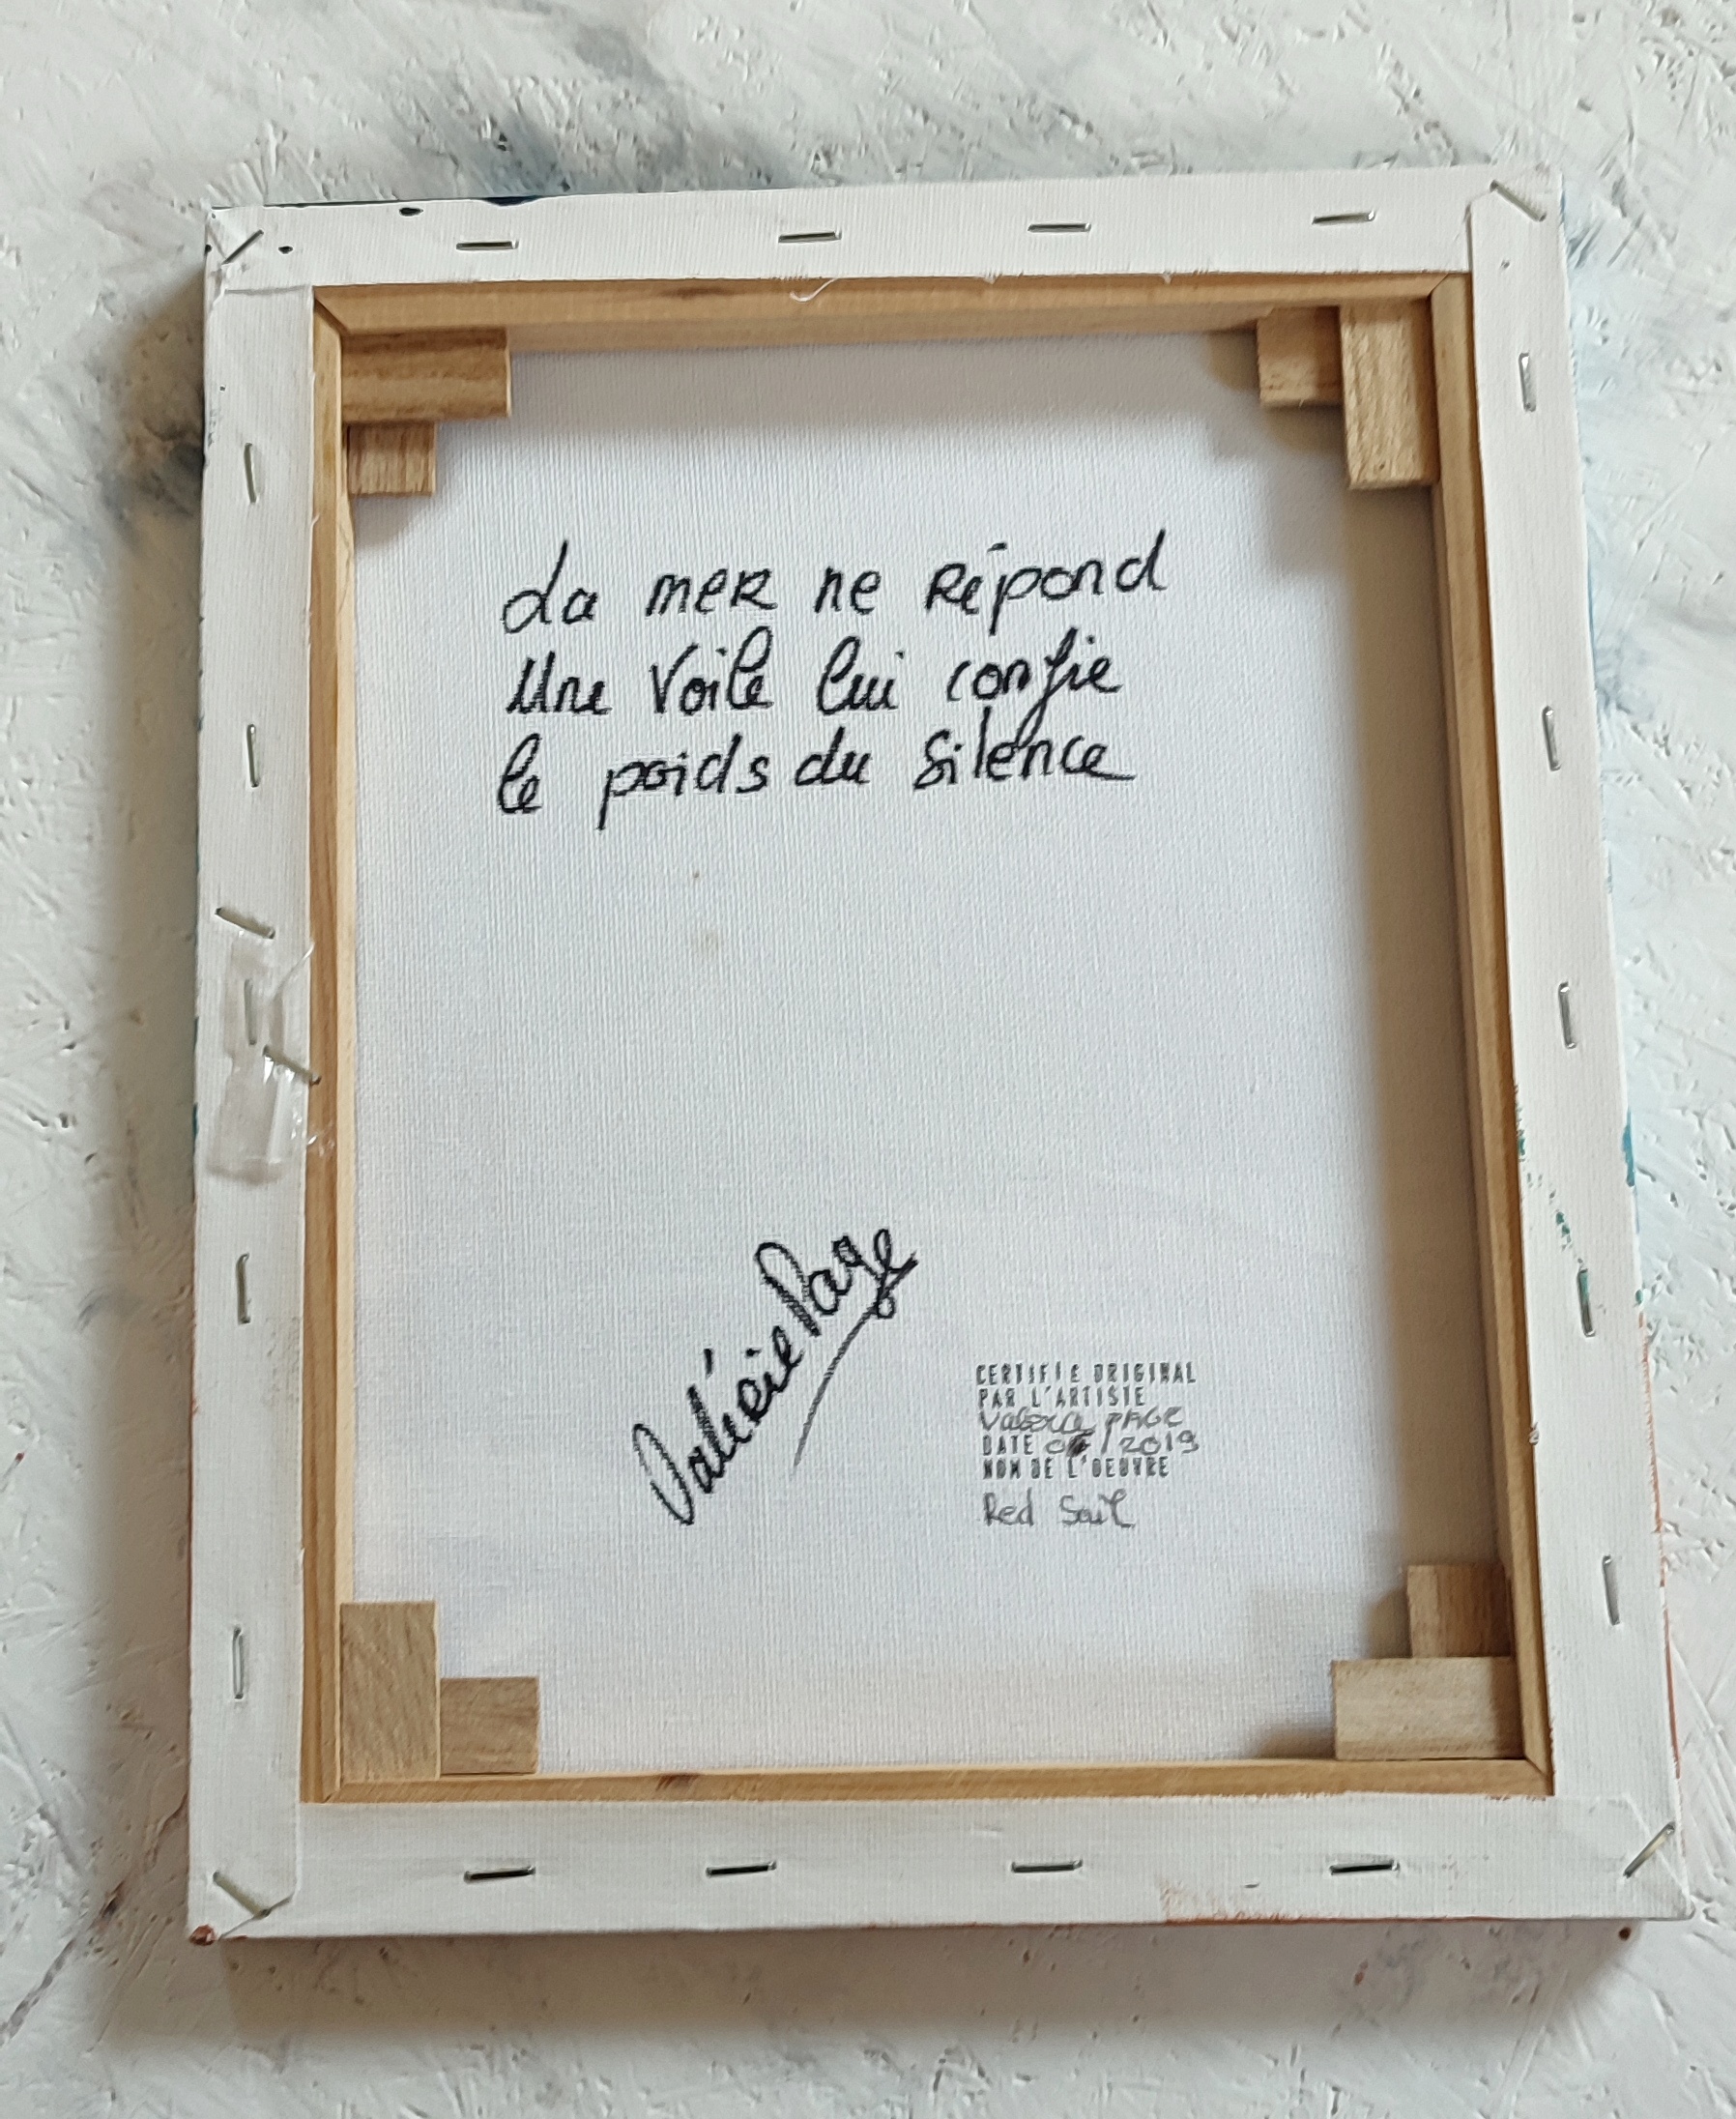 La mer ne répond
Une voile lui confie
le poids du silence
Valérie Page
CERTIFIE ORIGINAL
PAR L'ARTISTE
Valérie PAGE
DATE /2019
NOM DE L'OEUVRE
Red Sail